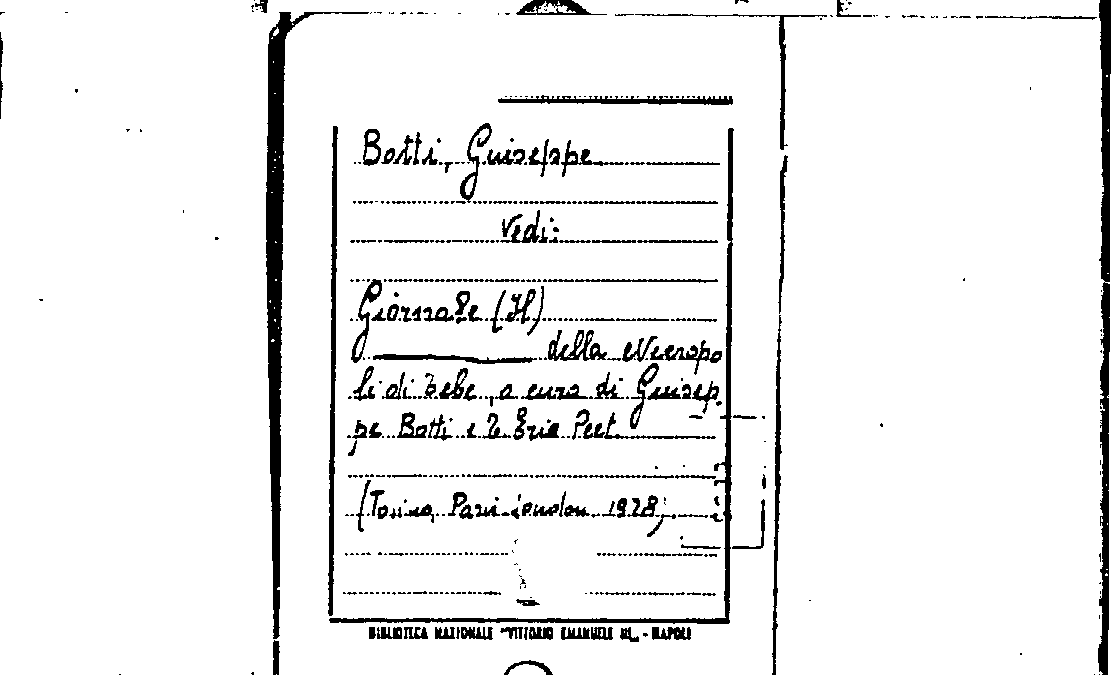 Botti, Guiseppe
Vedi:
Giornale (Il)
della Necropo
li di Tebe, a cura di Guisep.
pe Botti e T. Eric Peet.
(Torino, Pari-London 1928).
BIBLIOTECA NAZIONALE "VITTORIO EMANUELE III„ - NAPOLI